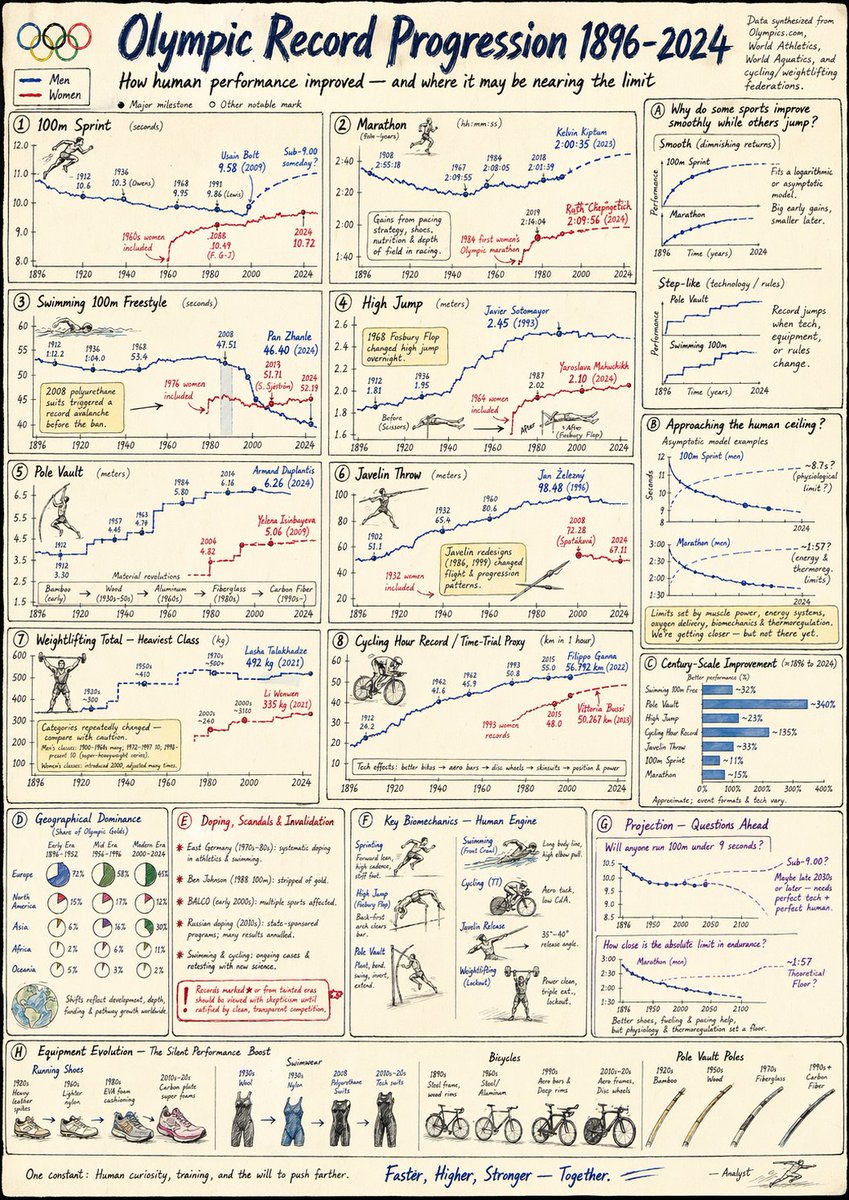 Olympic Record Progression 1896-2024
How human performance improved — and where it may be nearing the limit
Data synthesized from
Olympics.com,
World Athletics,
World Aquatics, and
cycling/weightlifting
federations.
Men
Women
● Major milestone ○ Other notable mark
1 100m Sprint (seconds)
12.0
11.0
10.0
9.0
8.0
1912
10.6
1936
10.3 (Owens)
1968
9.95
1991
9.86 (Lewis)
Usain Bolt
9.58 (2009)
Sub-9.00
someday?
1960s women
included
10.49
(F. G-J)
2024
10.72
1896 1920 1940 1960 1980 2000 2024
2 Marathon (hh:mm:ss)
2:40
2:20
2:00
1:40
1908
2:55:18
1967
2:09:55
1984
2:08:05
2018
2:01:39
Kelvin Kiptum
2:00:35 (2023)
Gains from pacing
strategy, shoes,
nutrition & depth
of field in racing.
1984 first women's
Olympic marathon
2019
2:14:04
Ruth Chepngetich
2:09:56 (2024)
1896 1920 1940 1960 1980 2000 2024
3 Swimming 100m Freestyle (seconds)
60
55
50
45
40
1912
1:12.2
1936
1:04.0
1968
53.4
2008
47.51
Pan Zhanle
46.40 (2024)
2013
51.71
(S. Sjöström)
2024
52.19
2008 polyurethane
suits triggered a
record avalanche
before the ban.
1976 women
included
1896 1920 1940 1960 1980 2000 2024
4 High Jump (meters)
2.6
2.4
2.2
2.0
1.8
1.6
1968 Fosbury Flop
changed high jump
overnight.
Javier Sotomayor
2.45 (1993)
1912
1.81
1936
1.95
1987
2.02
Yaroslava Mahuchikh
2.10 (2024)
1964 women
included
Before
(Scissors)
After
After
(Fosbury Flop)
1896 1920 1940 1960 1980 2000 2024
5 Pole Vault (meters)
6.5
5.5
4.5
3.5
2.5
1.5
1912
1912
3.30
1957
4.45
1963
1984
5.80
2014
6.16
Armand Duplantis
6.26 (2024)
2004
4.82
Yelena Isinbayeva
5.06 (2009)
Material revolutions
Bamboo
(early)
Wood
(1930s-50s)
Aluminum
(1960s)
Fiberglass
(1980s)
Carbon Fiber
(1990s-)
1896 1920 1940 1960 1980 2000 2024
6 Javelin Throw (meters)
100
80
60
40
20
1902
51.1
1932
65.4
1960
80.6
Jan Železný
98.48 (1996)
2008
72.28
(Špotáková)
2024
67.11
1932 women
included
Javelin redesigns
(1986, 1999) changed
flight & progression
patterns.
1896 1920 1940 1960 1980 2000 2024
7 Weightlifting Total — Heaviest Class (kg)
600
500
400
300
200
100
1920s
~300
1950s
~410
1970s
~500+
Lasha Talakhadze
492 kg (2021)
2000s
~240
2000s
~310
Li Wenwen
335 kg (2021)
Categories repeatedly changed —
compare with caution.
Men's classes: 1900-1960s many; 1972-1997 10; 1998-
present 10 (super-heavyweight series).
Women's classes: introduced 2000, adjusted many times.
1896 1920 1940 1960 1980 2000 2024
8 Cycling Hour Record / Time-Trial Proxy (km in 1 hour)
60
50
40
30
20
10
1912
24.2
1942
41.6
1962
45.9
1993
50.8
2015
55.0
Filippo Ganna
56.792 km (2022)
1993 women
records
2015
48.0
Vittoria Bussi
50.267 km (2023)
Tech effects: better bikes → aero bars → disc wheels → skinsuits → position & power
1896 1920 1940 1960 1980 2000 2024
A Why do some sports improve
smoothly while others jump?
Smooth (diminishing returns)
100m Sprint
Marathon
Performance
1896 Time (years) 2024
Fits a logarithmic
or asymptotic
model.
Big early gains,
smaller later.
Step-like (technology / rules)
Pole Vault
Swimming 100m
Performance
1896 Time (years) 2024
Record jumps
when tech,
equipment,
or rules
change.
B Approaching the human ceiling?
Asymptotic model examples
100m Sprint (men)
Seconds
12
11
10
9
8
2024
~8.7s?
(physiological
limit?)
Marathon (men)
3:00
2:30
2:00
1:30
2024
~1:57?
(energy &
thermoreg.
limits)
Limits set by muscle power, energy systems,
oxygen delivery, biomechanics & thermoregulation.
We're getting closer — but not there yet.
C Century-Scale Improvement (≈1896 to 2024)
Better performance (%)
Swimming 100m Free ~32%
Pole Vault ~340%
High Jump ~23%
Cycling Hour Record ~135%
Javelin Throw ~33%
100m Sprint ~11%
Marathon ~15%
0% 100% 200% 300% 400%
Approximate; event formats & tech vary.
D Geographical Dominance
(Share of Olympic Golds)
Early Era
1896-1952
Mid Era
1956-1996
Modern Era
2000-2024
Europe 72% 58% 45%
North
America 15% 17% 12%
Asia 6% 16% 30%
Africa 2% 6% 11%
Oceania 5% 3% 2%
Shifts reflect development, depth,
funding & pathway growth worldwide.
E Doping, Scandals & Invalidation
East Germany (1970s-80s): systematic doping
in athletics & swimming.
Ben Johnson (1988 100m): stripped of gold.
BALCO (early 2000s): multiple sports affected.
Russian doping (2010s): state-sponsored
programs; many results annulled.
Swimming & cycling: ongoing cases &
retesting with new science.
! Records marked ★ or from tainted eras
should be viewed with skepticism until
ratified by clean, transparent competition.
F Key Biomechanics — Human Engine
Sprinting
Forward lean,
high cadence,
stiff foot.
High Jump
(Fosbury Flop)
Back-first
arch clears
bar.
Pole Vault
Plant, bend,
swing, invert,
extend.
Swimming
(Front Crawl)
Long body line,
high elbow pull.
Cycling (TT)
Aero tuck,
low CdA.
Javelin Release
35°-40°
release angle.
Weightlifting
(Lockout)
Power clean,
triple ext.,
lockout.
G Projection — Questions Ahead
Will anyone run 100m under 9 seconds?
10.5
10.5
9.5
8.5
1896 1950 2000 2050 2100
Sub-9.00?
Maybe late 2030s
or later — needs
perfect tech +
perfect human.
How close is the absolute limit in endurance?
Marathon (men)
3:00
2:30
2:00
1:30
1896 1950 2000 2050 2100
~1:57
Theoretical
Floor?
Better shoes, fueling & pacing help,
but physiology & thermoregulation set a floor.
H Equipment Evolution — The Silent Performance Boost
Running Shoes
1920s
Heavy
leather
spikes
1960s
Lighter
nylon
1980s
EVA foam
cushioning
2010s-20s
Carbon plate
super foams
Swimwear
1930s
Wool
1930s
Nylon
2008
Polyurethane
Suits
2010s-20s
Tech suits
Bicycles
1890s
Steel frame,
wood rims
1960s
Steel/
Aluminum
1990s
Aero bars &
Deep rims
2010s-20s
Aero frames,
Disc wheels
Pole Vault Poles
1920s
Bamboo
1950s
Wood
1970s
Fiberglass
1990s+
Carbon
Fiber
One constant: Human curiosity, training, and the will to push farther.
Faster, Higher, Stronger — Together.
— Analyst